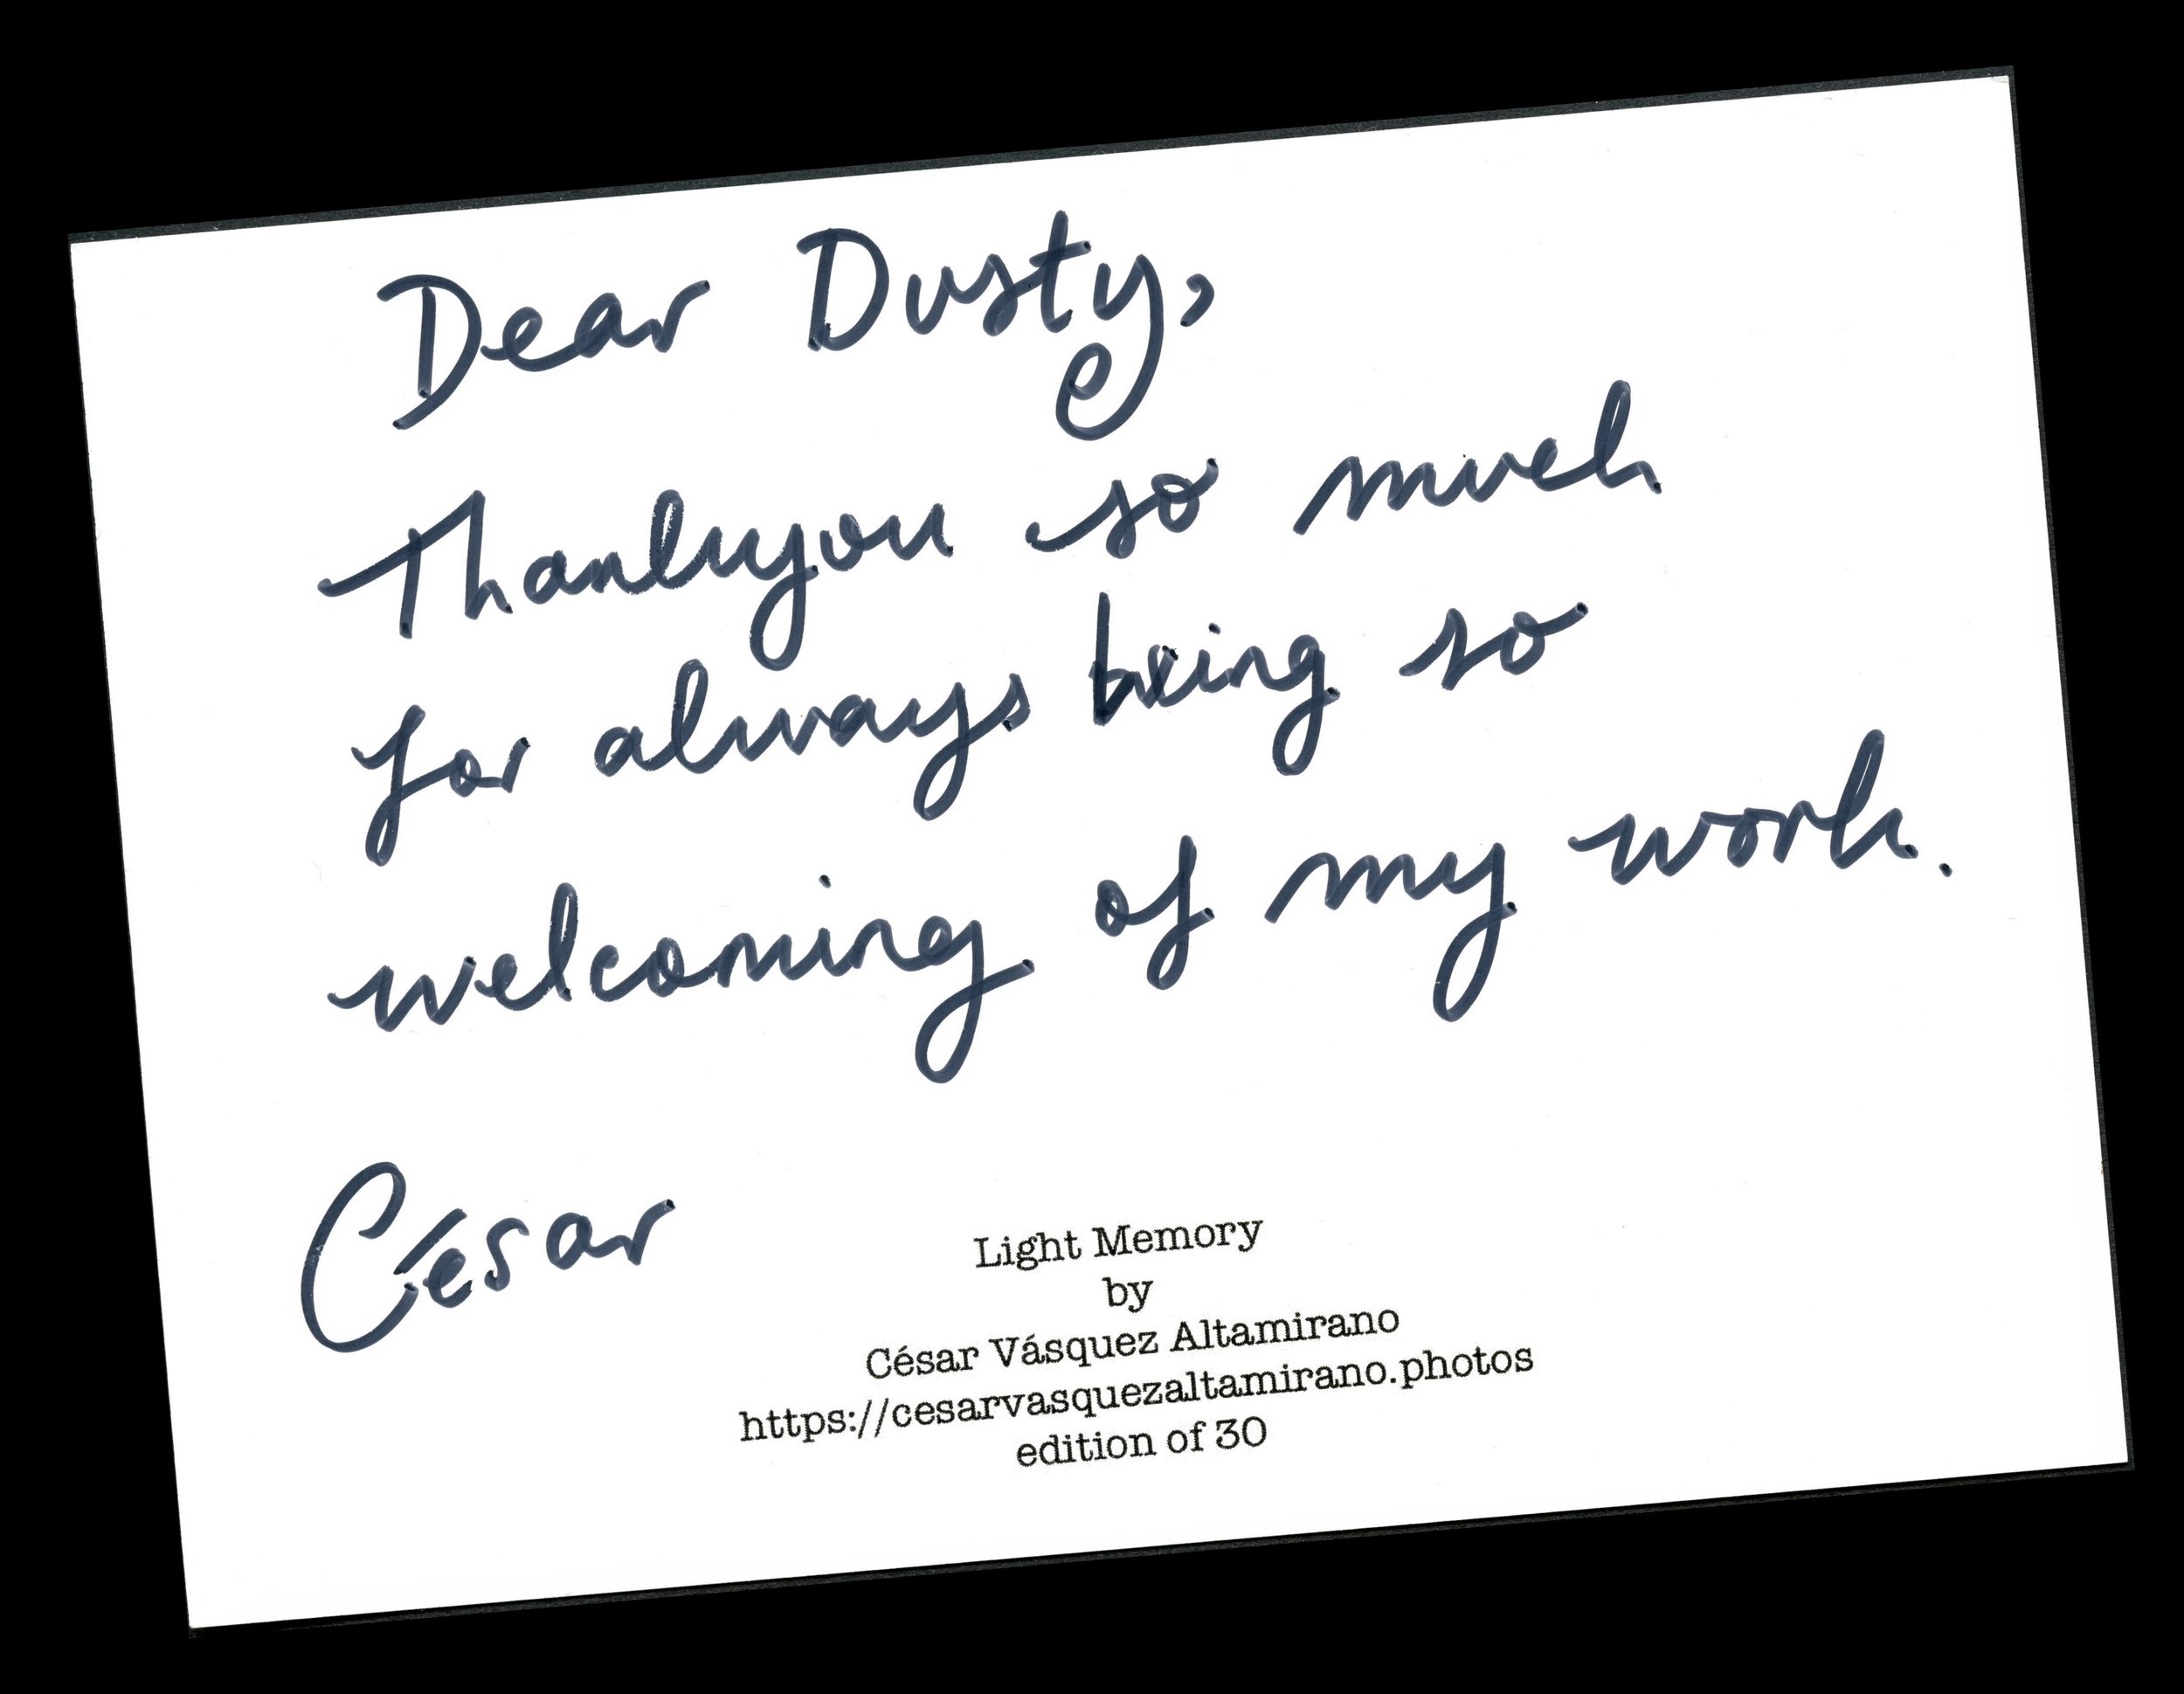 Dear Dusty,
Thankyou so much
for always being so
welcoming of my work.
César
Light Memory
by
César Vásquez Altamirano
https://cesarvasquezaltamirano.photos
edition of 30